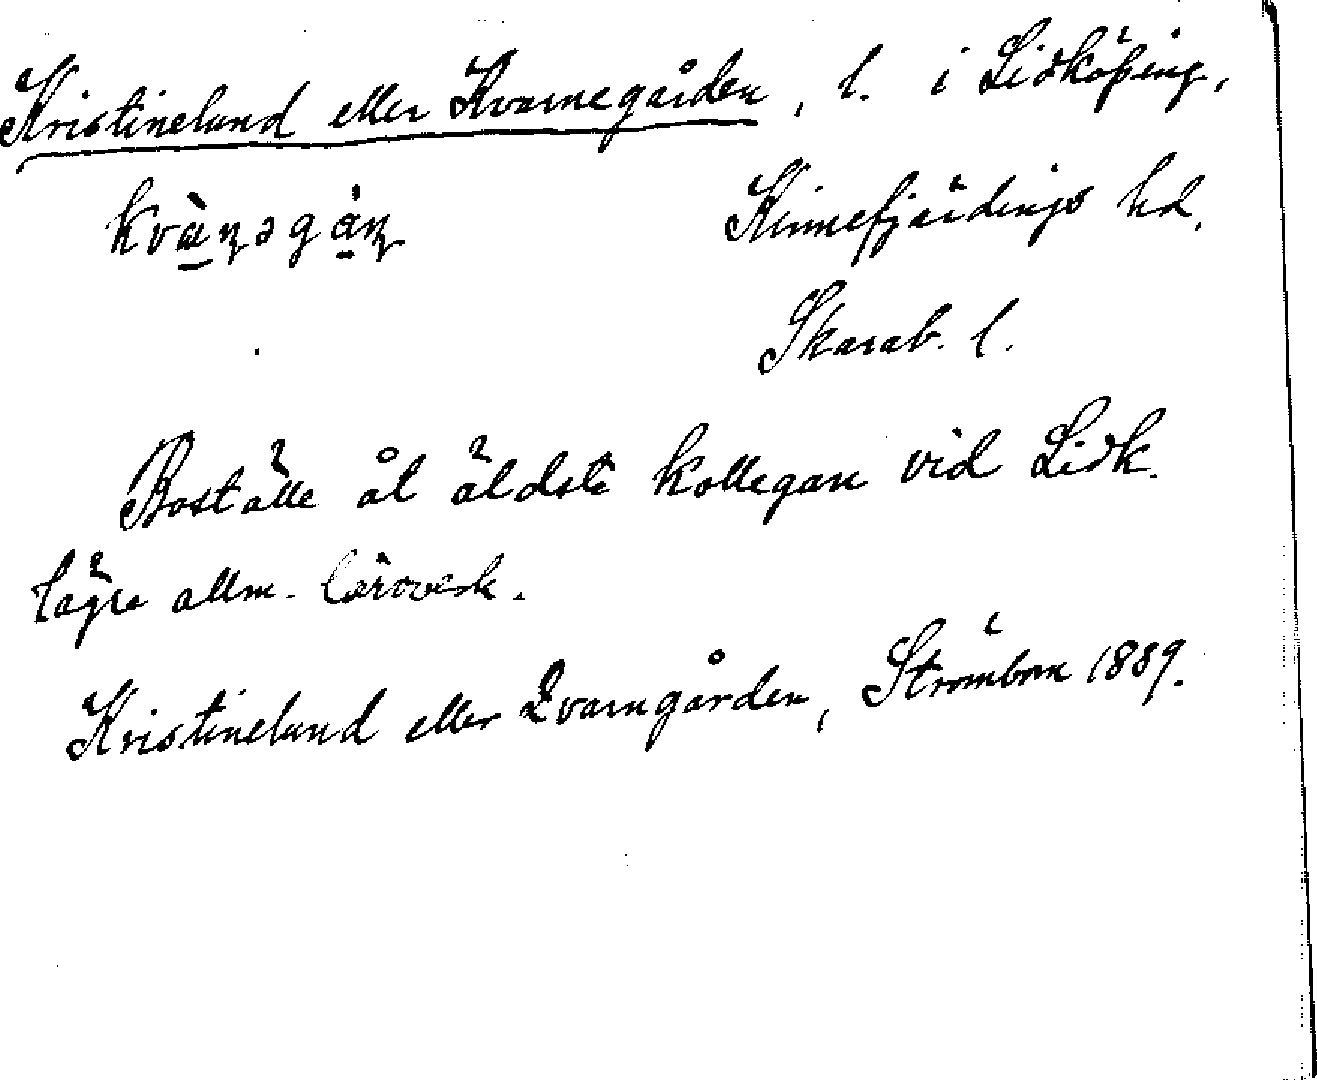 Kristinelund eller Kvarnegården, l. i Lidköping,
Kinnefjärdings hd.
Skarab. l.
Boställe åt äldste kollegan vid Lidk.
lägre allm. läroverk.
Kristinelund eller Qvarngården, Strömbom 1889.